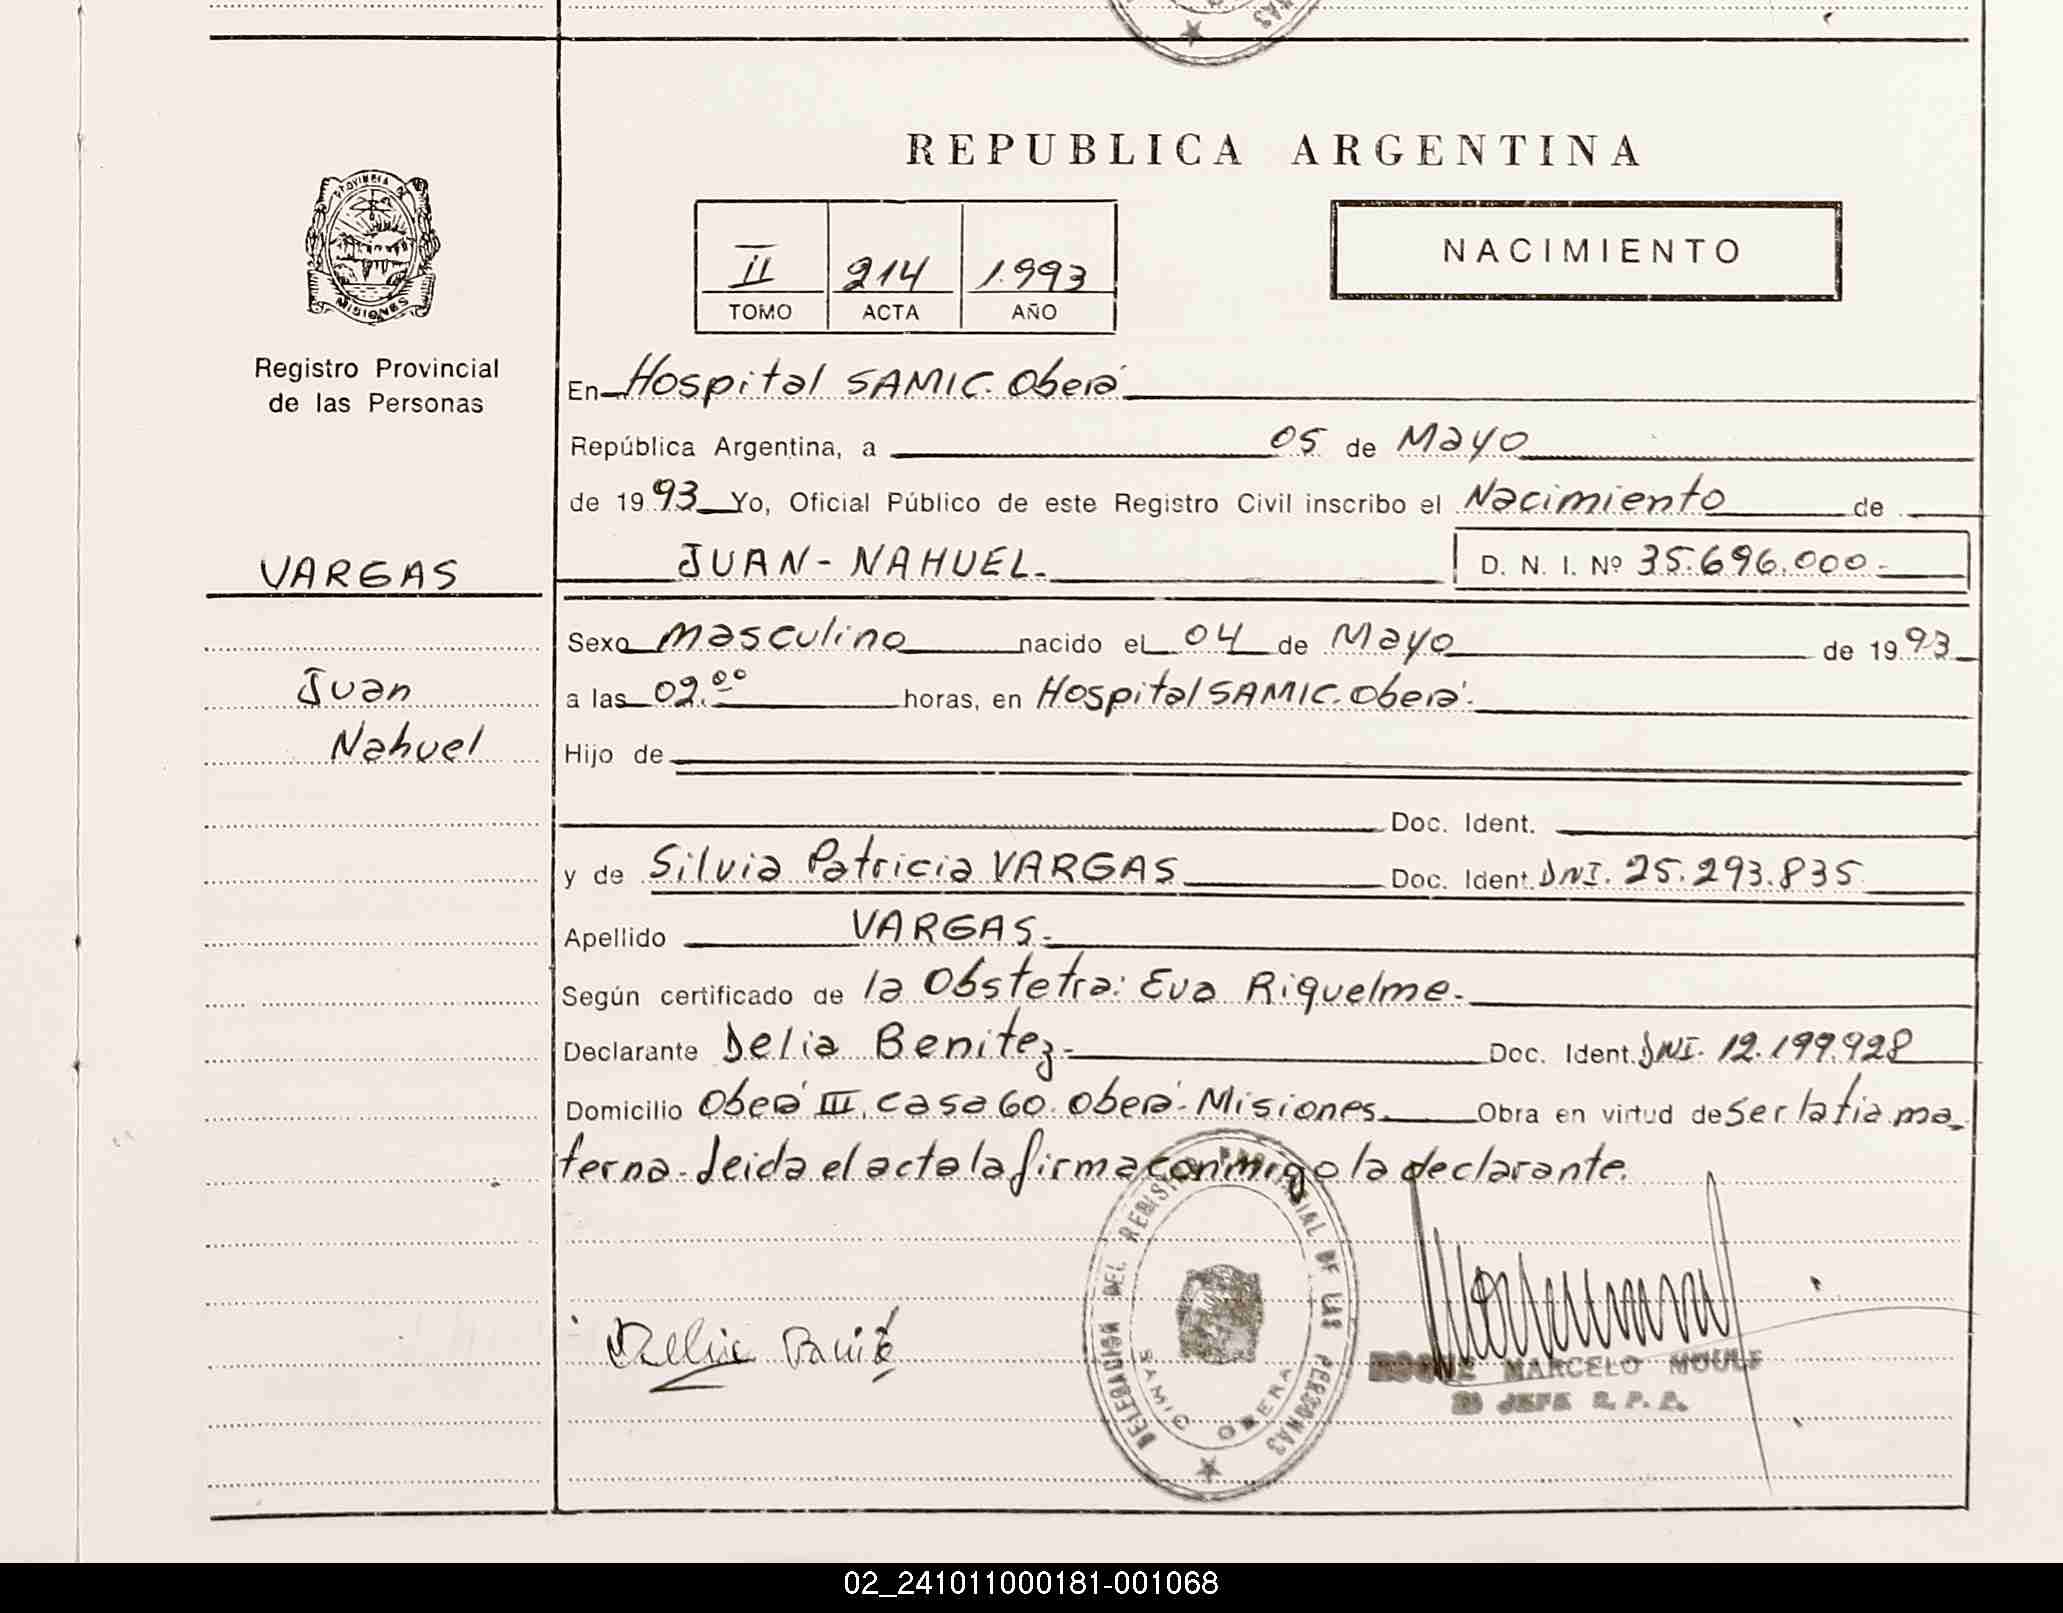 REPUBLICA ARGENTINA
PROVINCIA DE
MISIONES
II 214 1.993
TOMO ACTA AÑO
NACIMIENTO
Registro Provincial
de las Personas
En Hospital SAMIC. Oberá
República Argentina, a 05 de Mayo
de 1993 Yo, Oficial Público de este Registro Civil inscribo el Nacimiento de
VARGAS
JUAN - NAHUEL. D. N. I. Nº 35.696.000.-
Sexo masculino nacido el 04 de Mayo de 1993
Juan
a las 02.00 horas, en Hospital SAMIC. Oberá.
Nahuel
Hijo de
Doc. Ident.
y de Silvia Patricia VARGAS Doc. Ident. DNI. 25.293.835
Apellido VARGAS.
Según certificado de la Obstetra: Eva Riquelme.
Declarante Delia Benitez.- Doc. Ident. DNI. 12.199.928
Domicilio Oberá III, casa 60. Oberá - Misiones Obra en virtud de ser la tia ma-
terna. Leida el acta la firma conmigo la declarante.
DELEGACION DEL REGISTRO PROVINCIAL DE LAS PERSONAS
SAMIC OBERA
MARCELO
JEFE R. P. P.
02_241011000181-001068